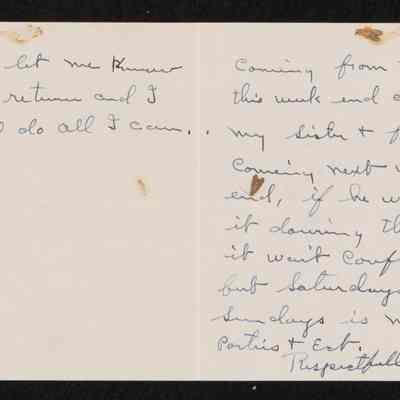 let me Know
return and I
do all I can..
Coming from
this week end
my sister +
Coming next
end, if he w
it douring th
it wait Conf
but Saturdays
Sundays is
Parties + Ect.
Respectfull